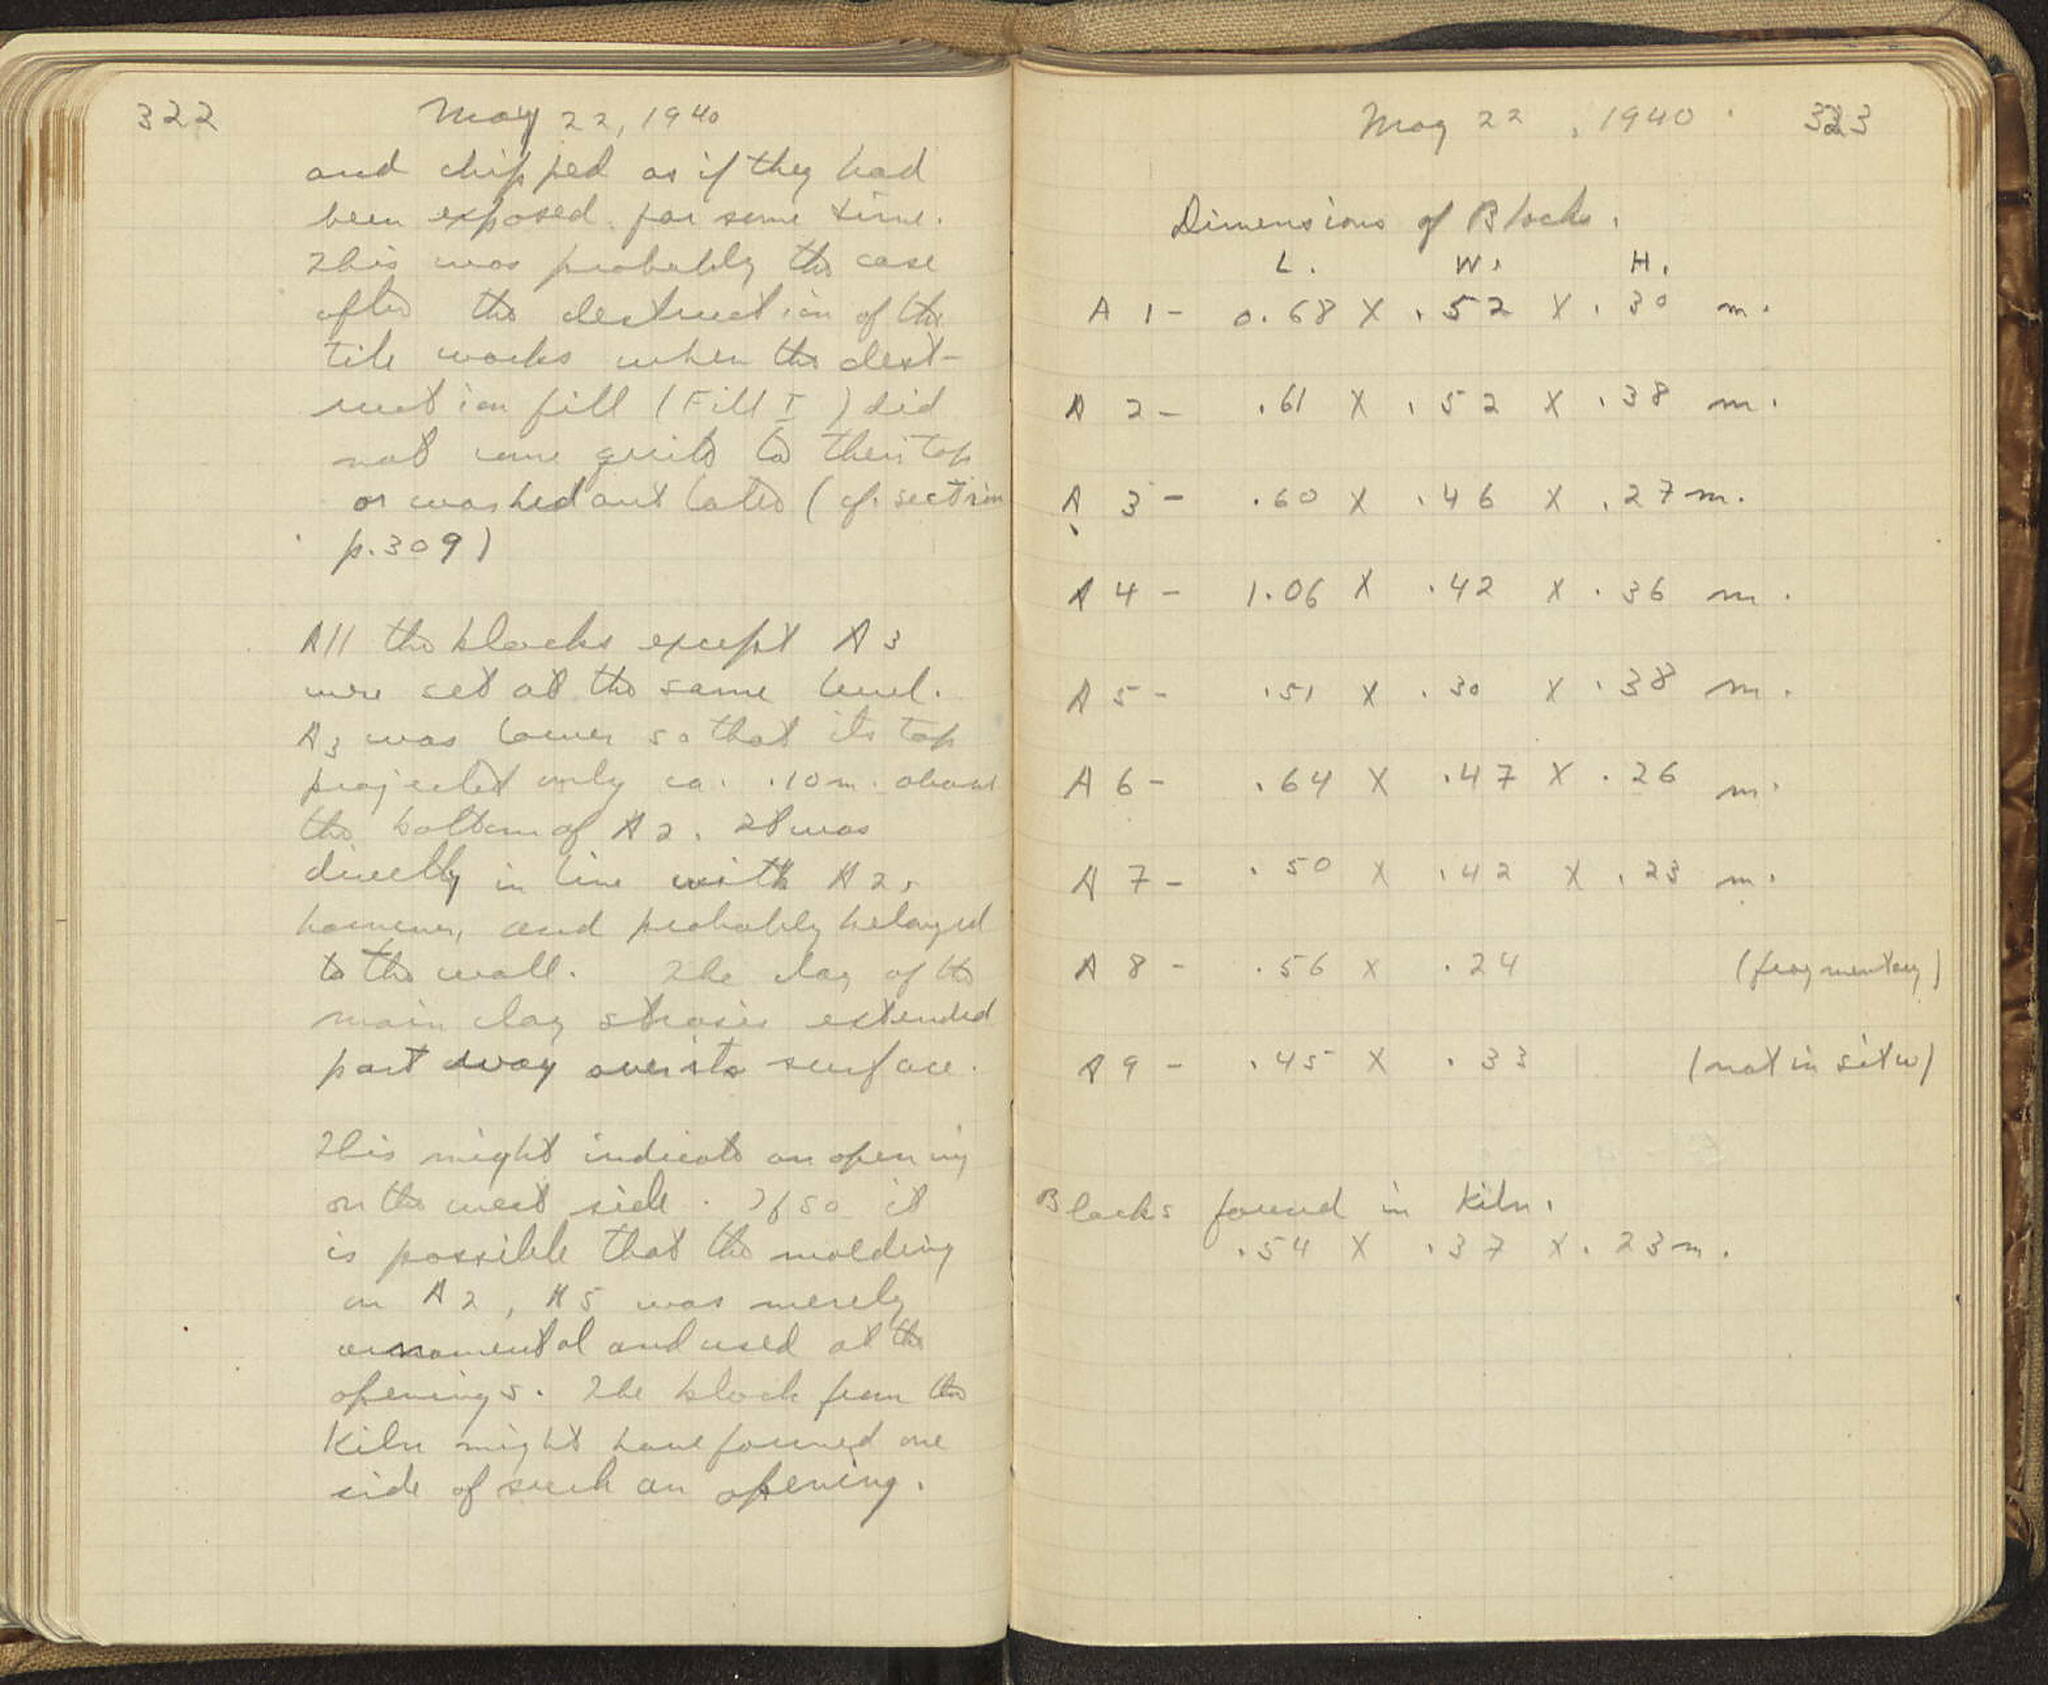 322
May 22, 1940
and chipped as if they had
been exposed for some time.
This was probably the case
after the destruction of the
tile works when the dest-
ruction fill (Fill I) did
not come quite to their top
or washed out later (cf. section
p. 309)
All the blocks except A3
were set at the same level.
A3 was lower so that its top
projected only ca. .10 m. above
the bottom of A2. It was
directly in line with A2,
however, and probably belonged
to the wall. The clay of the
main clay strosis extended
part way over its surface.
This might indicate an opening
on the west side. If so it
is possible that the molding
on A2, A5 was merely
ornamental and used at the
openings. The block from the
Kiln might have formed one
side of such an opening.
May 22, 1940. 323
Dimensions of Blocks.
L. W. H.
A 1 - 0.68 X .52 X .30 m.
A 2 - .61 X .52 X .38 m.
A 3 - .60 X .46 X .27 m.
A 4 - 1.06 X .42 X .36 m.
A 5 - .51 X .30 X .38 m.
A 6 - .64 X .47 X .26 m.
A 7 - .50 X .42 X .23 m.
A 8 - .56 X .24 (fragmentary)
A 9 - .45 X .33 (not in situ)
Blocks found in Kiln.
.54 X .37 X .23 m.